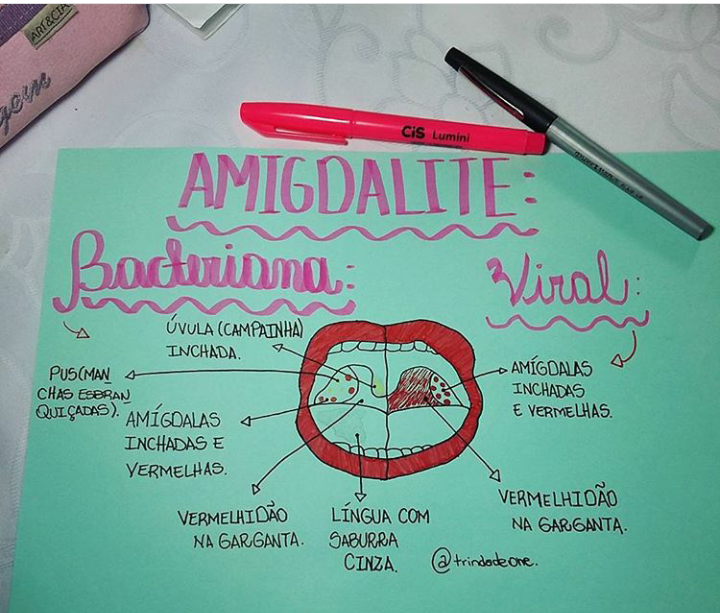 ART&CIA
CiS Lumini
AMIGDALITE:
Bacteriana:
Viral:
ÚVULA (CAMPAINHA)
INCHADA.
PUS(MAN
CHAS ESBRAN
QUIÇADAS).
AMÍGDALAS
INCHADAS E
VERMELHAS.
VERMELHIDÃO
NA GARGANTA.
LÍNGUA COM
SABURRA
CINZA.
AMÍGDALAS
INCHADAS
E VERMELHAS.
VERMELHIDÃO
NA GARGANTA.
@trindadeone.